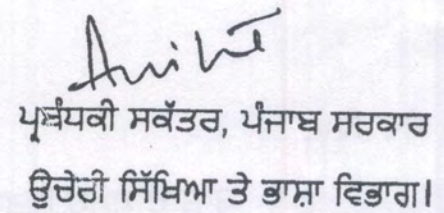 ਪ੍ਰਬੰਧਕੀ ਸਕੱਤਰ, ਪੰਜਾਬ ਸਰਕਾਰ
ਉਚੇਰੀ ਸਿੱਖਿਆ ਤੇ ਭਾਸ਼ਾ ਵਿਭਾਗ।